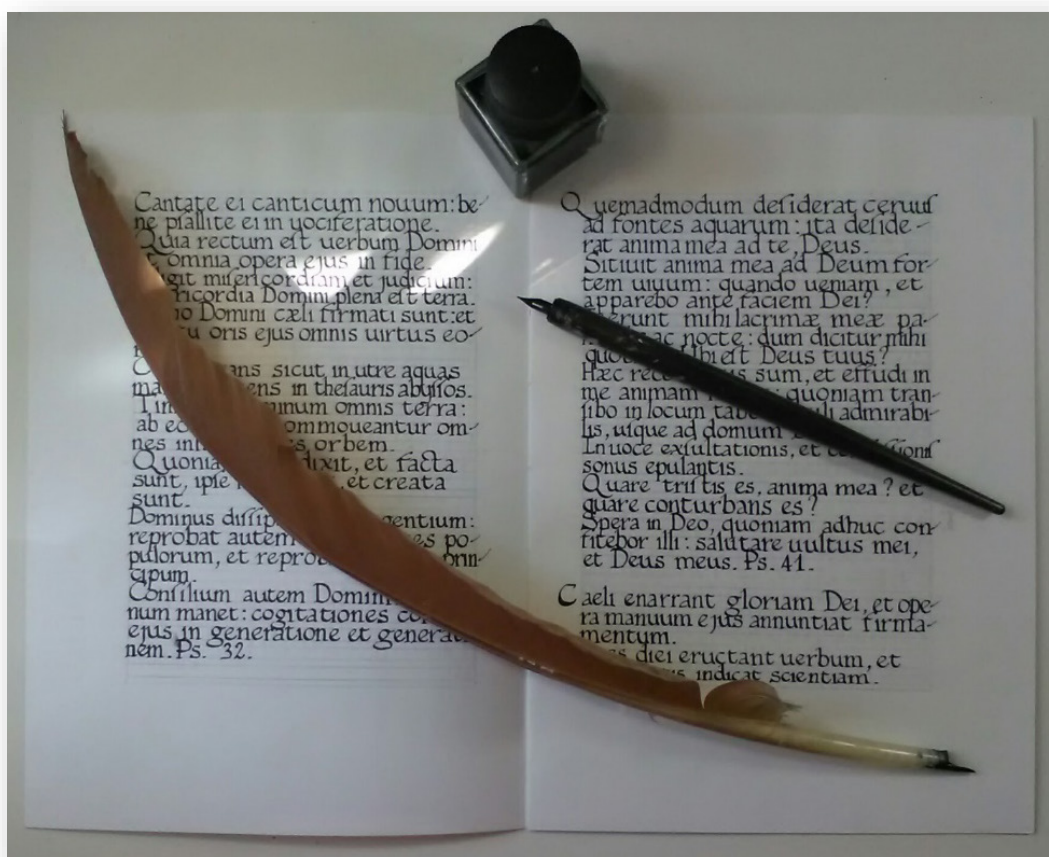 Cantate ei canticum nouum: be-
ne pſallite ei in uociferatione.
Quia rectum eſt uerbum Domini
et omnia opera ejus in fide.
miſericordiam et judicium:
Domini plena eſt terra.
Domini cæli firmati sunt: et
oris ejus omnis uirtus eo-
sicut in utre aquas
in theſauris abyſſos.
omnis terra:
ab commoueantur om-
nes orbem.
dixit, et facta
sunt, ipſe , et creata
sunt.
Dominus gentium:
reprobat autem po-
pulorum, et prin-
cipum.
Conſilium autem
num manet: cogitationes
ejus in generatione et
nem. Ps. 32.
Quemadmodum deſiderat ceruuſ
ad fontes aquarum: ita deſide-
rat anima mea ad te, Deus.
Sitiuit anima mea ad Deum for-
tem uiuum: quando ueniam, et
apparebo ante faciem Dei?
mihi lacrimæ meæ pa-
ac nocte: dum dicitur mihi
eſt Deus tuus?
Hæc sum, et effudi in
me animam quoniam tran-
ſibo in locum admirabi-
lis, uſque ad domum
In uoce exſultationis, et
sonus epulantis.
Quare triſtis es, anima mea? et
quare conturbans es?
Spera in Deo, quoniam adhuc con-
fitebor illi: salutare uultus mei,
et Deus meus. Ps. 41.
Caeli enarrant gloriam Dei, et ope-
ra manuum ejus annuntiat firma-
mentum.
diei eructant uerbum, et
indicat scientiam.